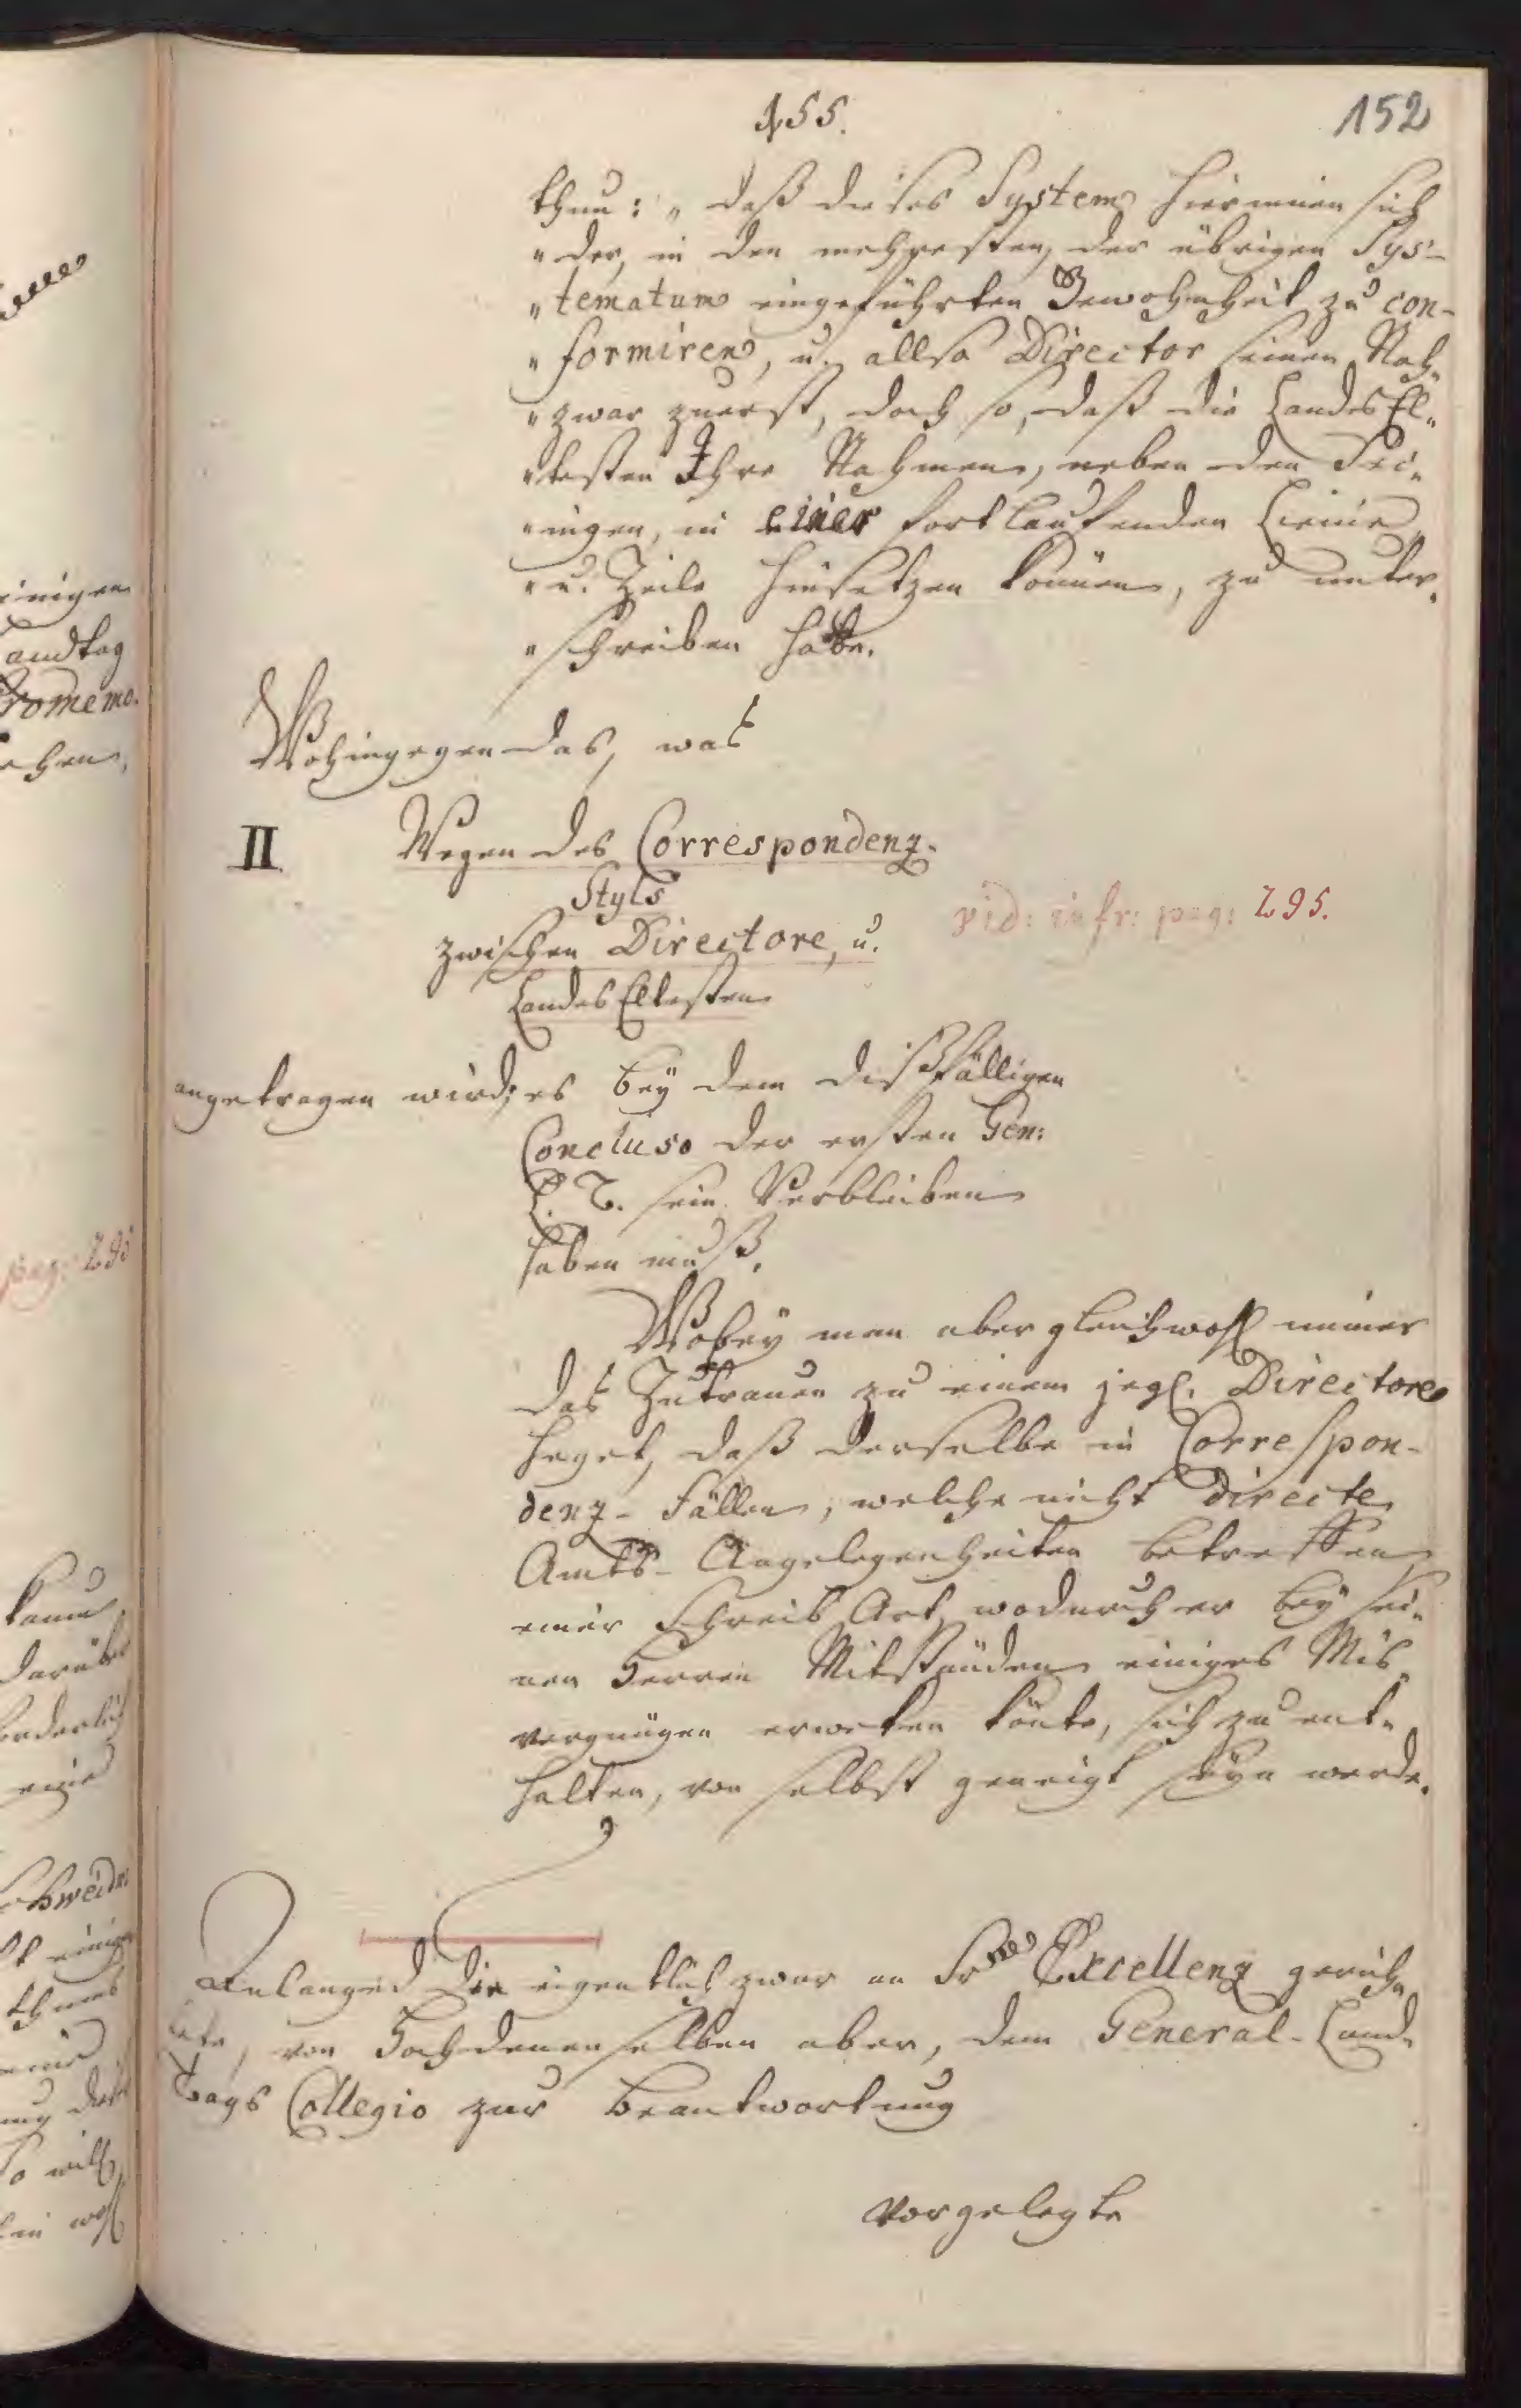 155.
152
thun: „ daß dieses System hierinnen sich
„ der, in den mehresten der übrigen Sys-
„ tematum eingeführten Gewohnheit zu con-
„ formiren, u. allso Director seinen Nah„
„ zwar zuerst, doch so, daß die LandesEl„
„ testen Ihre Nahmen, neben den Sei„
„ nigen, in einer fortlaufenden Linie
„ u. Zeile hinsetzen können, zu unter„
„ schreiben hätte.
Wohingegen das, was
II Wegen des Correspondenz-
Styls
zwischen Directore, u.
LandesEltesten
vid: infr: pag: 295.
angetragen wird; es bey dem dißfälligen
Concluso der ersten Gen:
L. T. sein Verbleiben
haben muß.
Wobey man aber gleichwohl immer
das Zutrauen zu einem jegl. Directore
heget, daß derselbe in Correspon-
denz-Fällen, welche nicht directe
Amts-Angelegenheiten betreffen
einer Schreib Art, wodurch er bey sei„
nen Herren Mitständen einiges Mis„
vergnügen erweken könte, sich zu ent„
halten, von selbst geneigt seyn werde.
Anlangend die eigentlich zwar an Srne Excellenz gerich„
tete, von Hochdenenselben aber, dem General-Land„
Tags Collegio zur Beantwortung
vorgelegte
inigen
andtag
Promemo.
chen,
pag: 295
kann
darüber
eine
Schweidn
einige